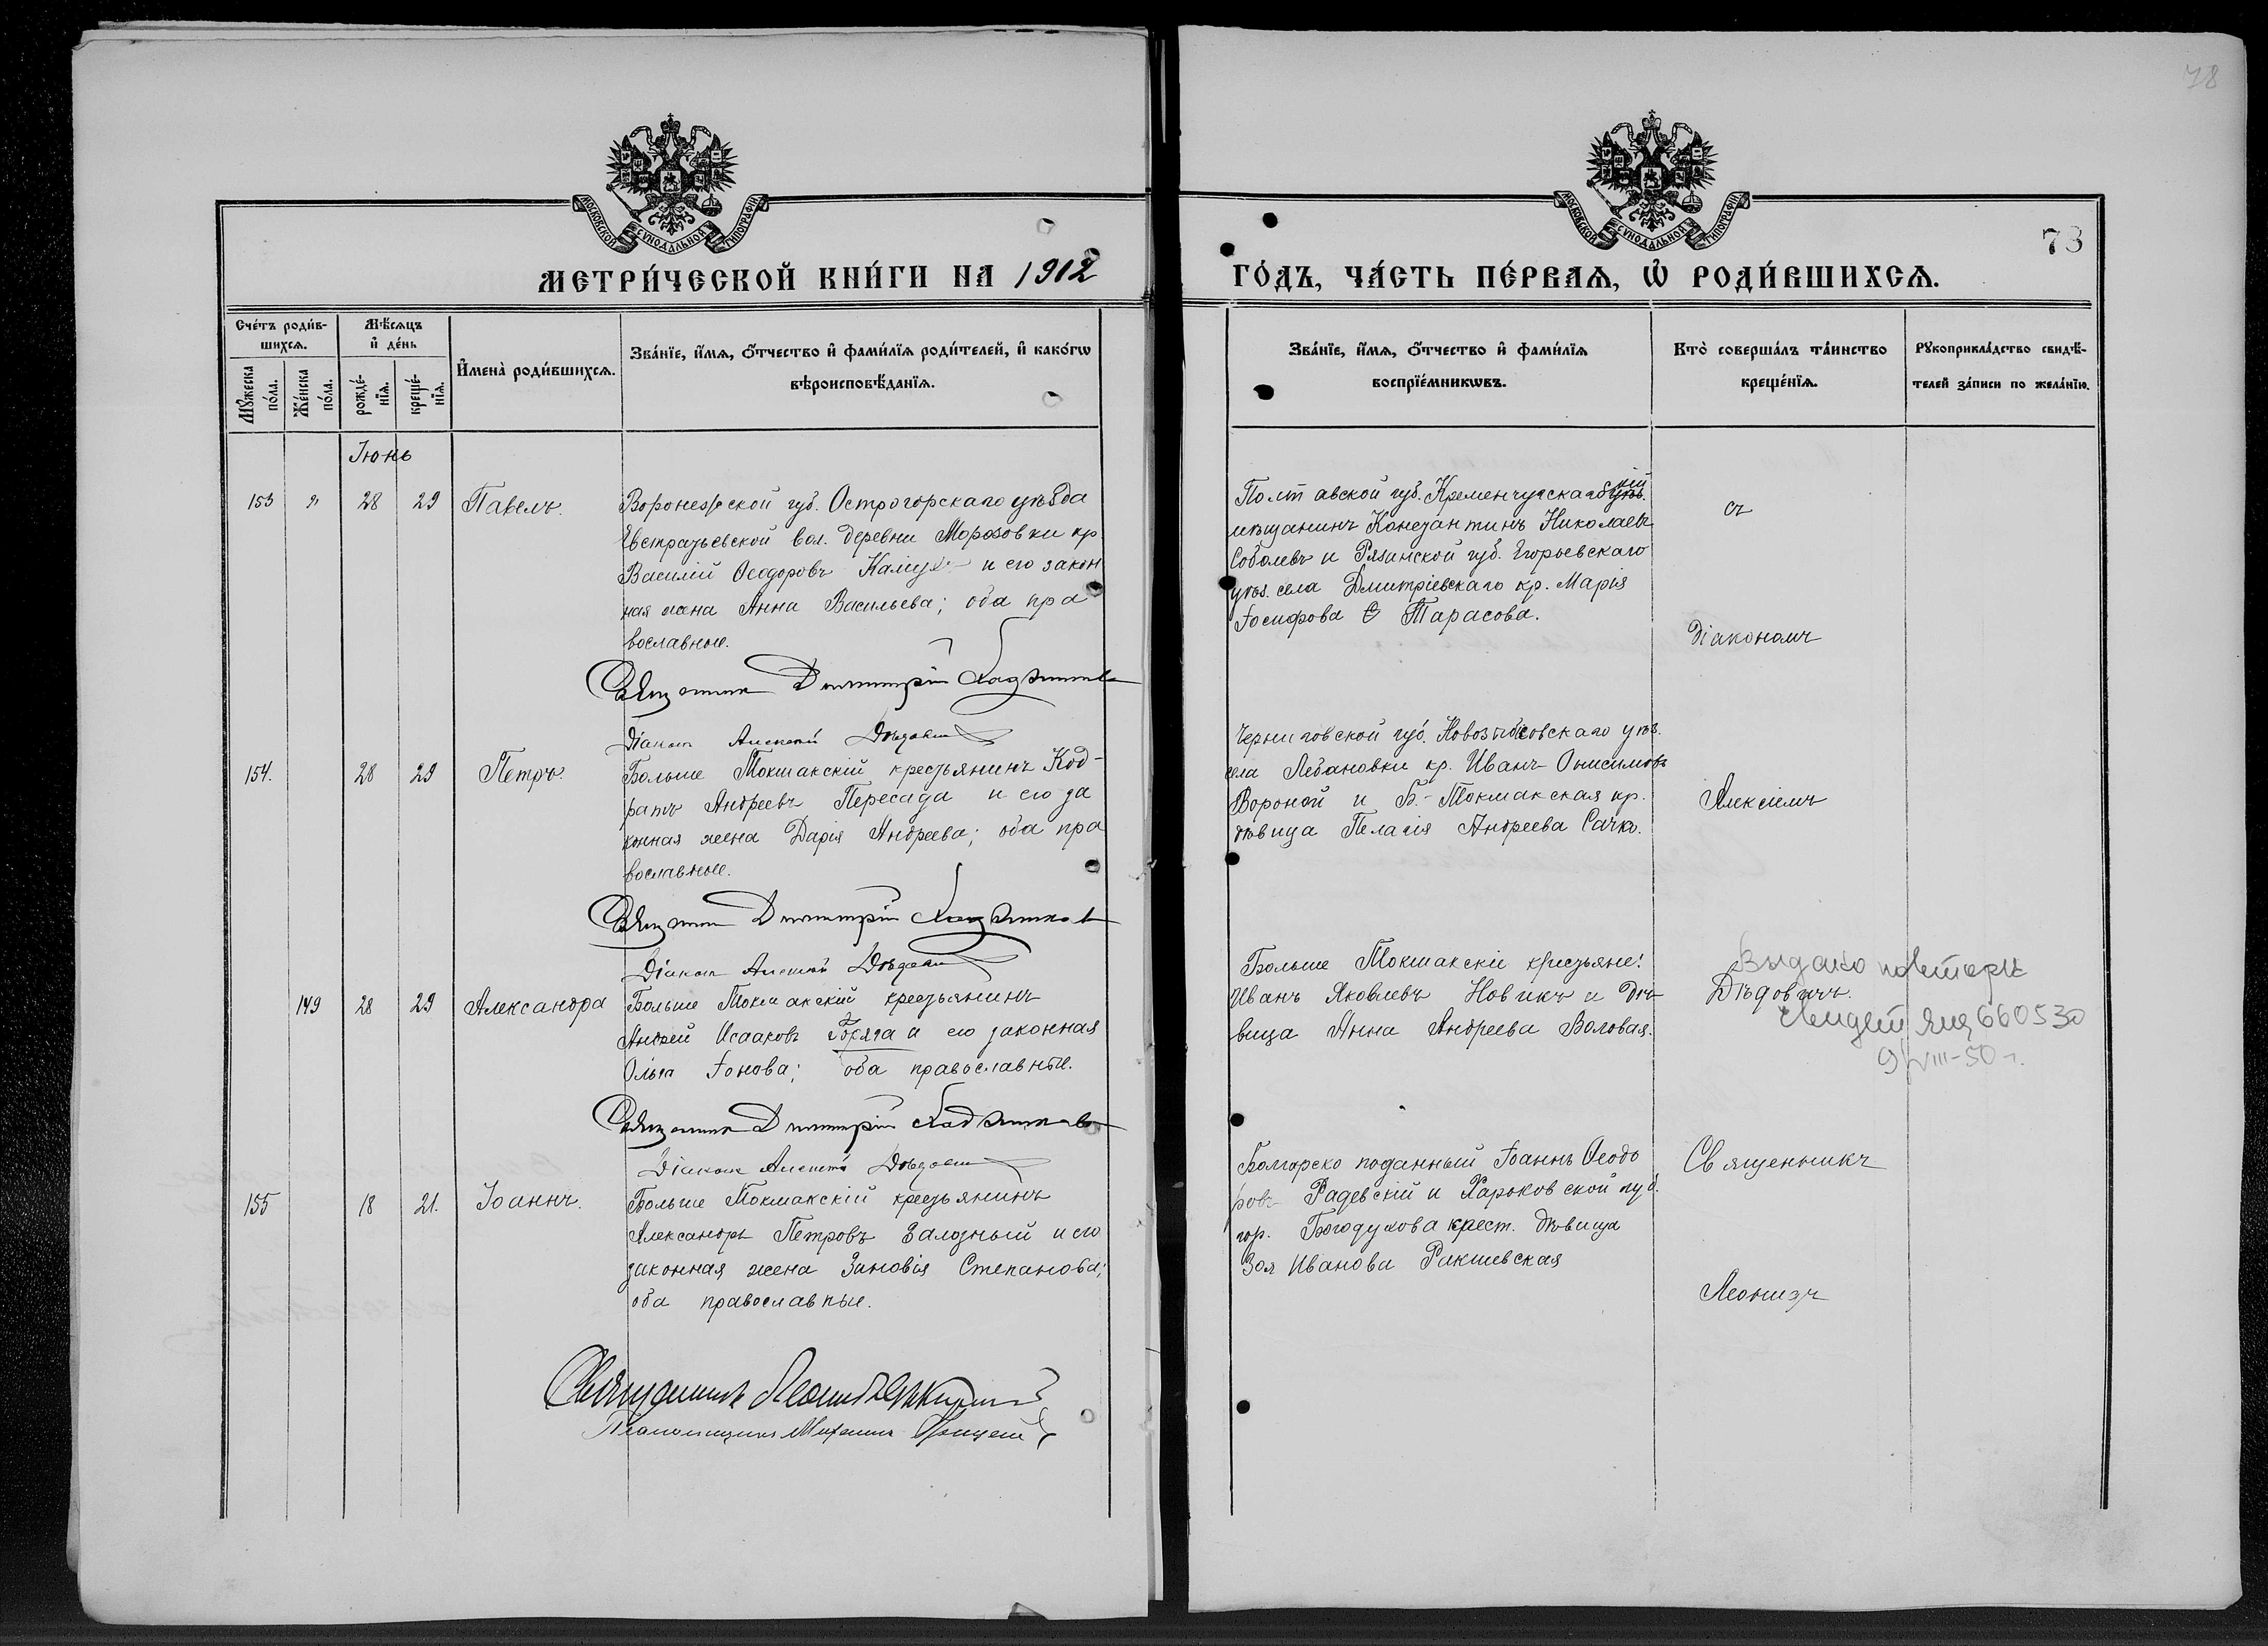 78
МОСКОВСКОЙ СУНОДАЛЬНОЙ ТИПОГРАФІИ
МОСКОВСКОЙ СУНОДАЛЬНОЙ ТИПОГРАФІИ
73
МЕТРИ́ЧЕСКОЙ КНИ́ГИ НА 1912
ГО́ДЪ, ЧА́СТЬ ПЕ́РВАѦ, Ѡ҆ РОДИ́ВШИХСѦ.
Сче́тъ роди́в-
шихсѧ.
Мꙋ́жеска по́ла.
Же́нска по́ла.
Мѣ́сѧцъ
и҆ де́нь
рожде́-
нїѧ.
креще́-
нїѧ.
И҆мена̀ роди́вшихсѧ.
Зва́нїе, и҆́мѧ, ѻ҆́тчество и҆ фами́лїѧ роди́телей, и҆ како́гѡ
вѣроисповѣ́данїѧ.
Зва́нїе, и҆́мѧ, ѻ҆́тчество и҆ фами́лїѧ
воспрїе́мникѡвъ.
Кто̀ соверша́лъ та́инство
креще́нїѧ.
Рꙋкоприкла́дство свидѣ́-
телей за́писи по жела́нїю.
Іюнь
153 " 28 29 Павелъ.
Воронежской губ. Острогорскаго уѣзда
Евстратьевской вол. деревни Морозовки кр
Василій Ѳеодоровъ и его закон
ная жена Анна Васильева; оба пра
вославные.
Священникъ Димитрій
Діаконъ Алексій Дѣдовичъ
Полтавской губ. Кременчугскій
мѣщанинъ Константинъ Николаевъ
Соболевъ и Рязанской губ. Егорьевскаго
уѣз. села Дмитріевскаго кр. Марія
Іосифова Тарасова.
съ
Діакономъ
154. 28 29 Петръ.
Больше Токмакскій крестьянинъ Код-
ратъ Андреевъ Пересада и его за
конная жена Дарія Андреева; оба пра
вославные.
Священникъ Димитрій
Діаконъ Алексій Дѣдовичъ
Черниговской губ. Новозыбковскаго уѣз.
села кр. Иванъ Онисимовъ
Вороной и Б.-Токмакская кр.
дѣвица Пелагія Андреева Сачко.
Алексіемъ
149 28 29 Александра
Больше Токмакскій крестьянинъ
Андрей Исааковъ и его законная
Ольга Іонова; оба православные.
Священникъ Димитрій
Діаконъ Алексій Дѣдовичъ
Больше Токмакскіе крестьяне:
Иванъ Яковлевъ Новикъ и дѣ-
вица Анна Андреева Воловая.
Видано повторне
Дѣдовичъ.
660530
9/VIII-50 г.
155 18 21. Іоаннъ.
Больше Токмакскій крестьянинъ
Александръ Петровъ Залозный и его
законная жена Зиновія Степанова;
оба православные.
Священникъ Леонидъ
Псаломщикъ Михаилъ
Болгарско поданный Іоаннъ Ѳеодо
ровъ Радевскій и Харьковской губ.
гор. Богодухова крест. дѣвица
Зоя Иванова Ракшевская
Священникъ
Леонидъ